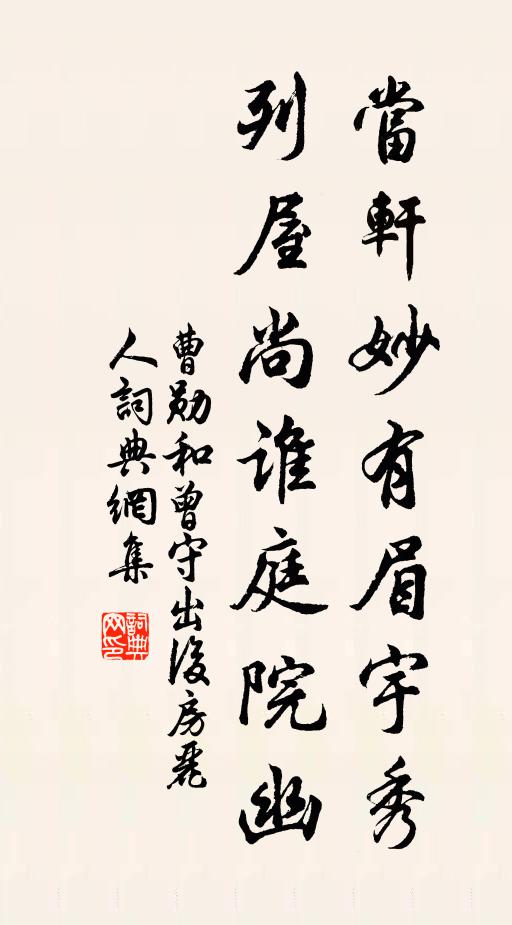 當軒妙有眉宇秀
列屋尚誰庭院幽
曹勛和曾守出後房麗
人詞典網集
詞典
网印